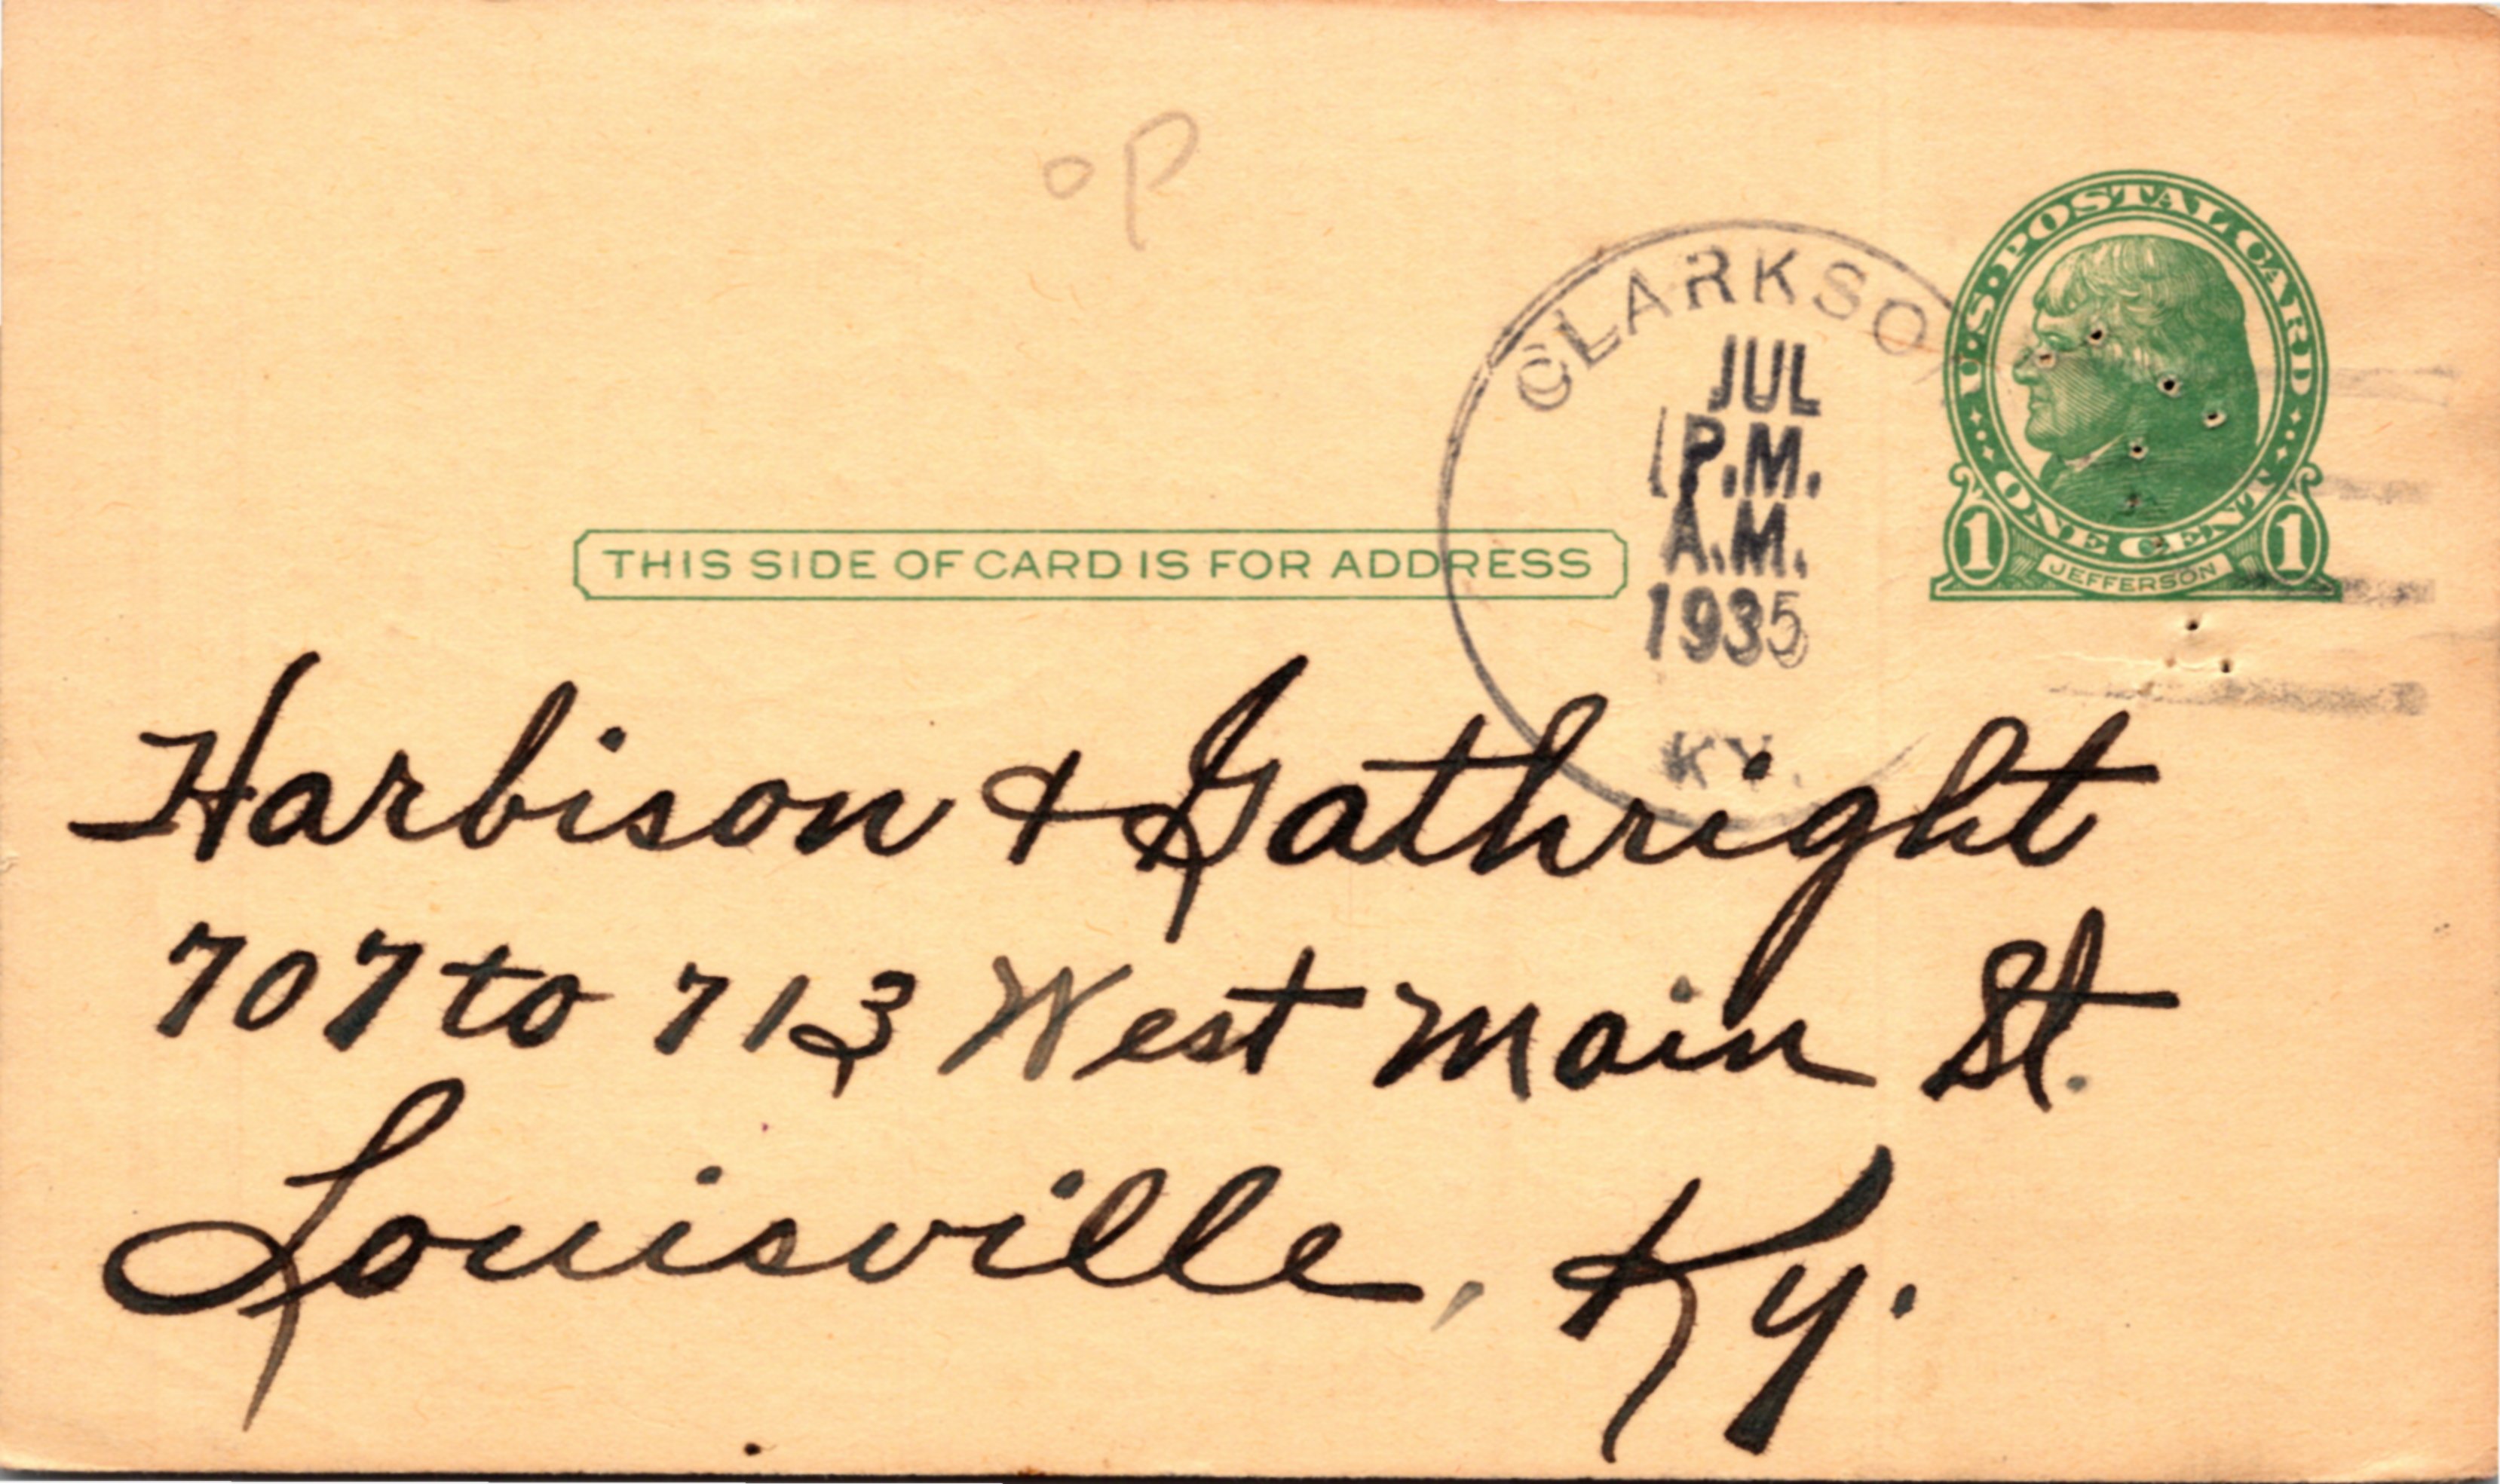 oP
U.S. POSTAL CARD
ONE CENT
1 JEFFERSON 1
CLARKSO
JUL
P.M.
A.M.
1935
KY.
THIS SIDE OF CARD IS FOR ADDRESS
Harbison & Gathright
707 to 713 West Main St.
Louisville, Ky.